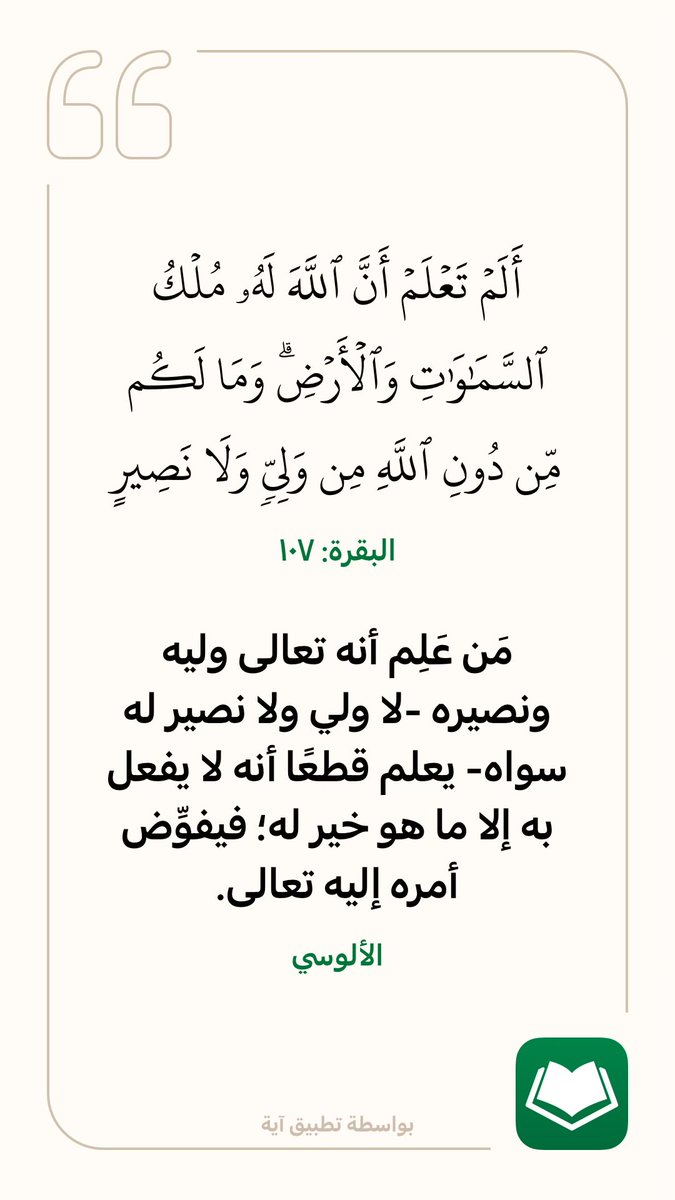 أَلَمۡ تَعۡلَمۡ أَنَّ ٱللَّهَ لَهُۥ مُلۡكُ
ٱلسَّمَٰوَٰتِ وَٱلۡأَرۡضِۗ وَمَا لَكُم
مِّن دُونِ ٱللَّهِ مِن وَلِيّٖ وَلَا نَصِيرٍ
البقرة: ١٠٧
مَن عَلِم أنه تعالى وليه
ونصيره -لا ولي ولا نصير له
سواه- يعلم قطعًا أنه لا يفعل
به إلا ما هو خير له؛ فيفوِّض
أمره إليه تعالى.
الألوسي
بواسطة تطبيق آية